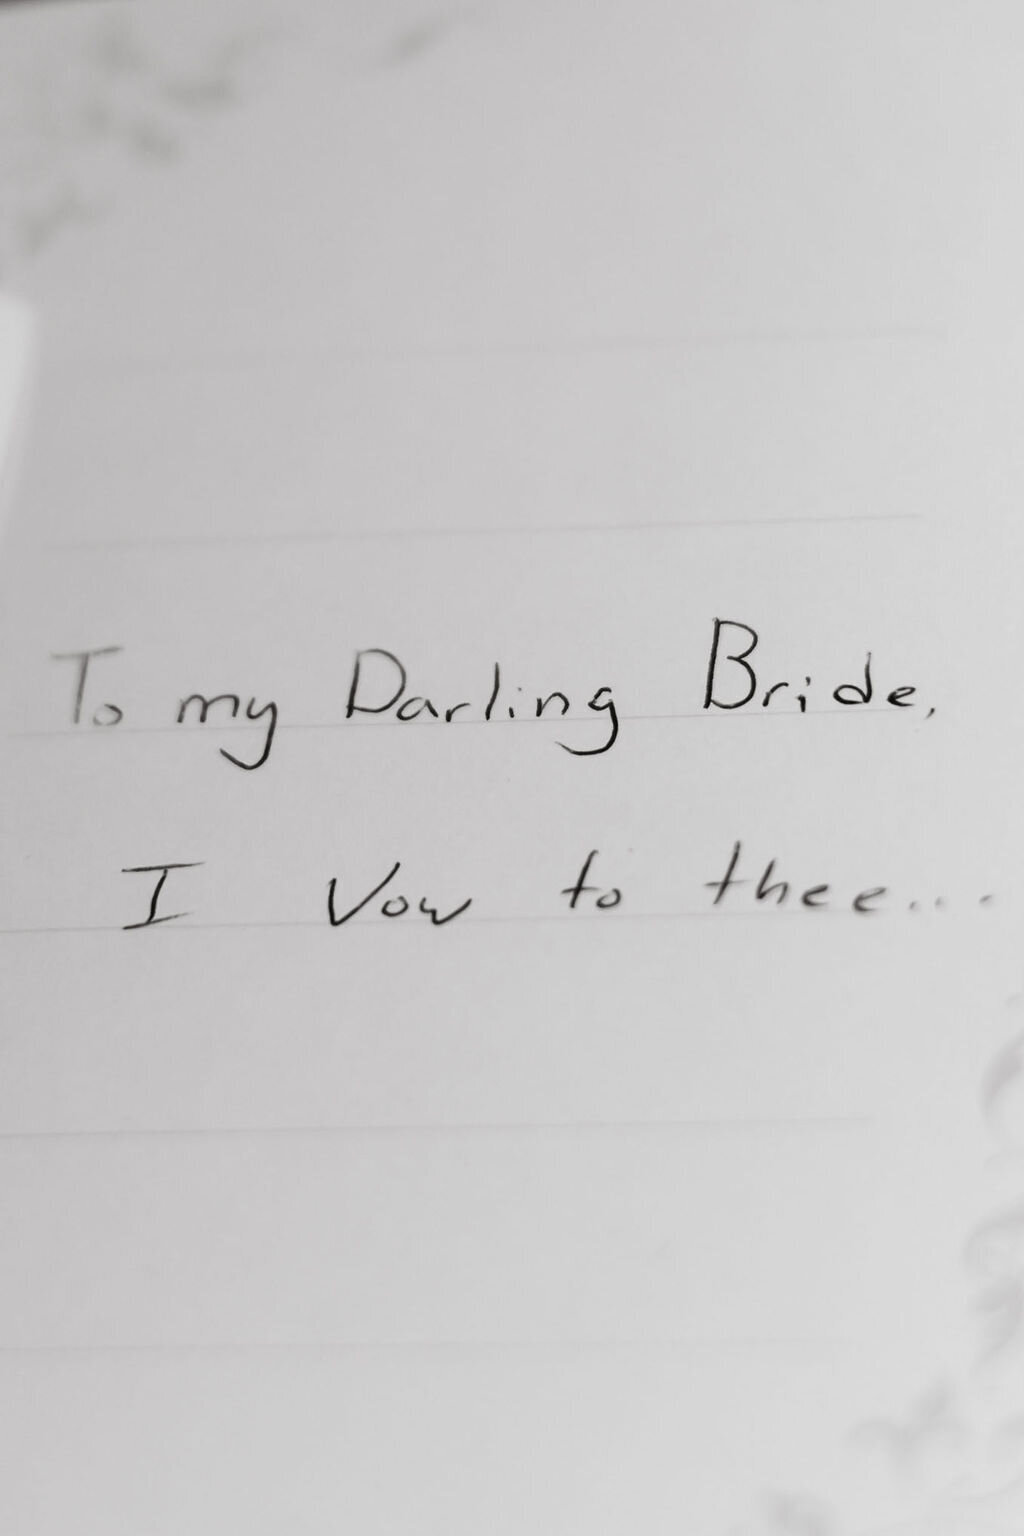 To my Darling Bride,
I Vow to thee...